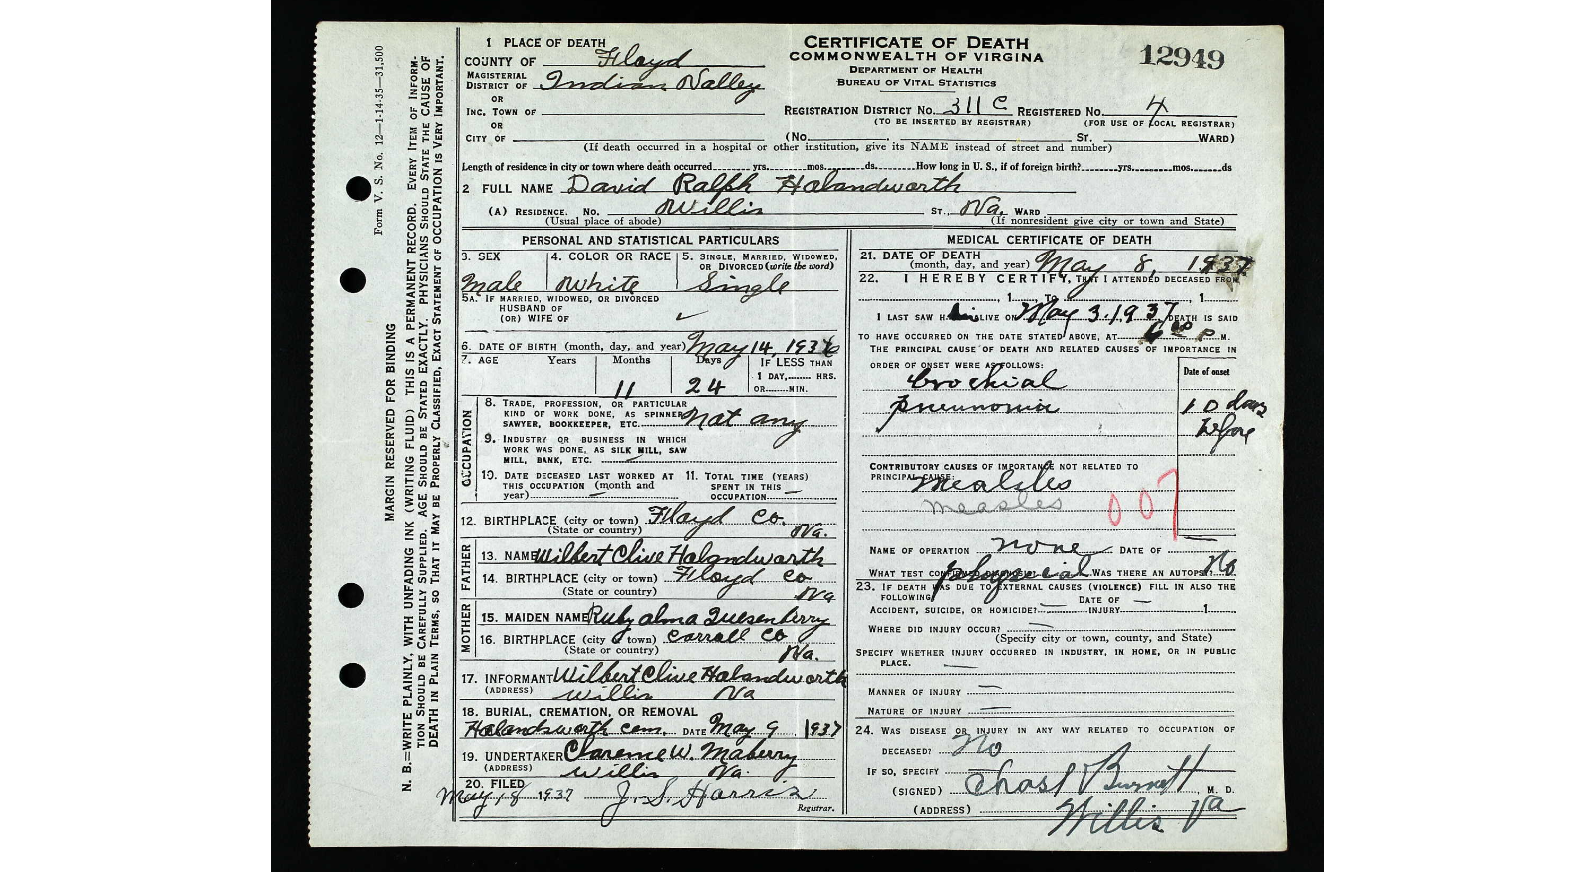 Form V. S. No. 12—1-14-35—31,500
MARGIN RESERVED FOR BINDING
N. B.—WRITE PLAINLY, WITH UNFADING INK (WRITING FLUID) THIS IS A PERMANENT RECORD. EVERY ITEM OF INFORM-
TION SHOULD BE CAREFULLY SUPPLIED. AGE SHOULD BE STATED EXACTLY. PHYSICIANS SHOULD STATE THE CAUSE OF
DEATH IN PLAIN TERMS, SO THAT IT MAY BE PROPERLY CLASSIFIED, EXACT STATEMENT OF OCCUPATION IS VERY IMPORTANT.
CERTIFICATE OF DEATH
COMMONWEALTH OF VIRGINIA
DEPARTMENT OF HEALTH
BUREAU OF VITAL STATISTICS
12949
1 PLACE OF DEATH
COUNTY OF Floyd
MAGISTERIAL DISTRICT OF Indian Valley
OR
INC. TOWN OF
OR
CITY OF
REGISTRATION DISTRICT NO. 311 C REGISTERED NO. 4
(TO BE INSERTED BY REGISTRAR) (FOR USE OF LOCAL REGISTRAR)
(No. St. WARD)
(If death occurred in a hospital or other institution, give its NAME instead of street and number)
Length of residence in city or town where death occurred yrs. mos. ds. How long in U. S., if of foreign birth? yrs. mos. ds
2 FULL NAME David Ralph Holandworth
(A) RESIDENCE. No. Willis ST., Va. WARD
(Usual place of abode) (If nonresident give city or town and State)
PERSONAL AND STATISTICAL PARTICULARS
3. SEX Male
4. COLOR OR RACE White
5. SINGLE, MARRIED, WIDOWED, OR DIVORCED (write the word) Single
5A. IF MARRIED, WIDOWED, OR DIVORCED
HUSBAND OF
(OR) WIFE OF
6. DATE OF BIRTH (month, day, and year) May 14, 1936
7. AGE Years Months 11 Days 24 IF LESS THAN
1 DAY, HRS.
OR MIN.
OCCUPATION
8. TRADE, PROFESSION, OR PARTICULAR
KIND OF WORK DONE, AS SPINNER,
SAWYER, BOOKKEEPER, ETC. Not any
9. INDUSTRY OR BUSINESS IN WHICH
WORK WAS DONE, AS SILK MILL, SAW
MILL, BANK, ETC.
10. DATE DECEASED LAST WORKED AT
THIS OCCUPATION (month and
year)
11. TOTAL TIME (YEARS)
SPENT IN THIS
OCCUPATION
12. BIRTHPLACE (city or town) Floyd Co.
(State or country) Va.
FATHER
13. NAME Wilbert Clive Holandworth
14. BIRTHPLACE (city or town) Floyd Co
(State or country) Va
MOTHER
15. MAIDEN NAME Ruby Alma Quesenberry
16. BIRTHPLACE (city or town) Carroll Co
(State or country) Va.
17. INFORMANT Wilbert Clive Holandworth
(ADDRESS) Willis Va
18. BURIAL, CREMATION, OR REMOVAL
Holandsworth cem. DATE May 9 1937
19. UNDERTAKER Clarence W. Maberry
(ADDRESS) Willis Va.
20. FILED
May, 18 1937 J. S. Harris
Registrar.
MEDICAL CERTIFICATE OF DEATH
21. DATE OF DEATH
(month, day, and year) May 8, 1937
22. I HEREBY CERTIFY, THAT I ATTENDED DECEASED FROM
, 1 , TO , 1
I LAST SAW HIM ALIVE ON May 3. 1937, DEATH IS SAID
TO HAVE OCCURRED ON THE DATE STATED ABOVE, AT P M.
THE PRINCIPAL CAUSE OF DEATH AND RELATED CAUSES OF IMPORTANCE IN
ORDER OF ONSET WERE AS FOLLOWS: Date of onset
brochial
pneumonia 10 days
before
CONTRIBUTORY CAUSES OF IMPORTANCE NOT RELATED TO
PRINCIPAL CAUSE:
Mealsles
measles
007
NAME OF OPERATION none DATE OF
WHAT TEST CONFIRMED DIAGNOSIS? physicial WAS THERE AN AUTOPSY? No
23. IF DEATH WAS DUE TO EXTERNAL CAUSES (VIOLENCE) FILL IN ALSO THE
FOLLOWING:
ACCIDENT, SUICIDE, OR HOMICIDE? DATE OF INJURY 1
WHERE DID INJURY OCCUR?
(Specify city or town, county, and State)
SPECIFY WHETHER INJURY OCCURRED IN INDUSTRY, IN HOME, OR IN PUBLIC
PLACE.
MANNER OF INJURY
NATURE OF INJURY
24. WAS DISEASE OR INJURY IN ANY WAY RELATED TO OCCUPATION OF
DECEASED? No
IF SO, SPECIFY
(SIGNED) Chas J Burnett, M. D.
(ADDRESS) Willis Va